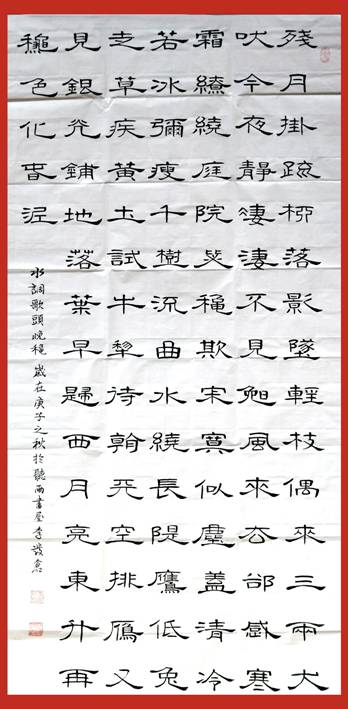 殘月掛疏柳落影墜輕枝偶來三兩犬
吠今夜靜凄淒不見風來去卻感寒
霜繚繞庭院穐欺宋寞似蓋清冷
若冰彌瘦千樹流曲水繞長隄鷹低兔
走草疾黃土試牛犁待翰天空排鴈又
見銀光鋪地落葉早歸西月亮東升再
穐色化春泥
水調歌頭晚穐 歲在庚子之秋於聽雨書屋李